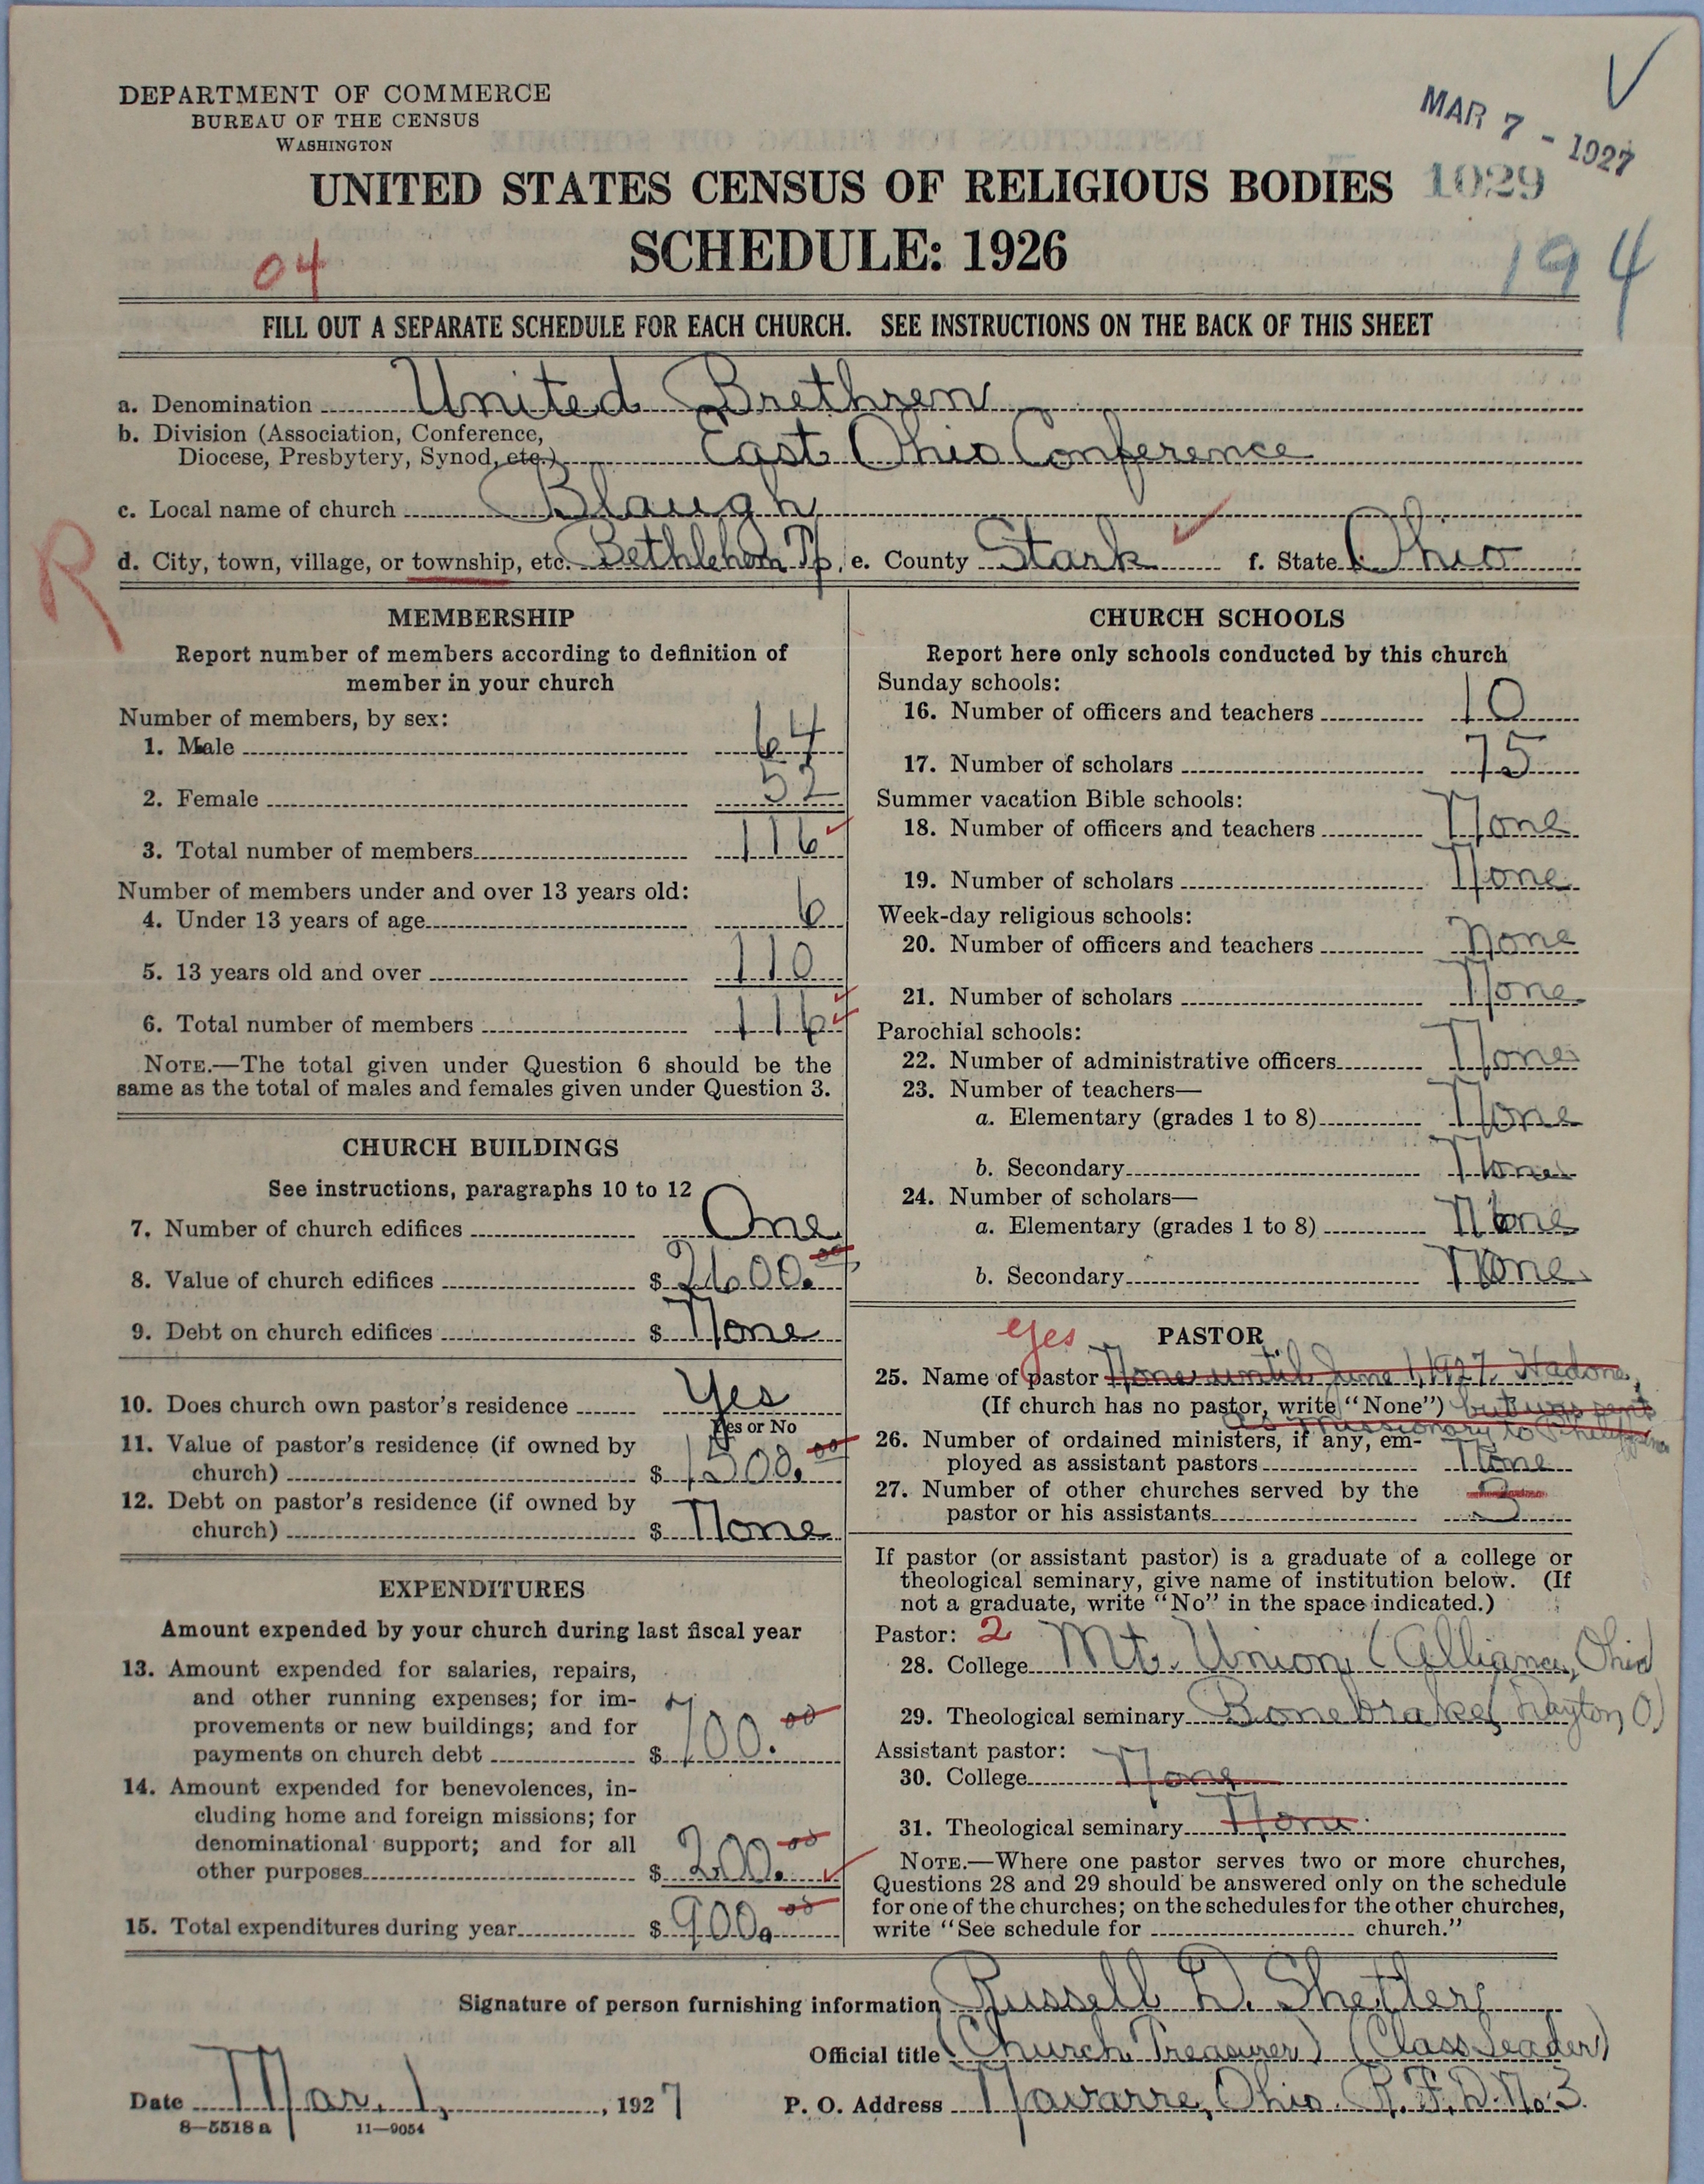 DEPARTMENT OF COMMERCE
BUREAU OF THE CENSUS
WASHINGTON
MAR 7 - 1927
1029
UNITED STATES CENSUS OF RELIGIOUS BODIES
SCHEDULE: 1926
04
194
FILL OUT A SEPARATE SCHEDULE FOR EACH CHURCH. SEE INSTRUCTIONS ON THE BACK OF THIS SHEET
a. Denomination United Brethren
b. Division (Association, Conference,
Diocese, Presbytery, Synod, etc.) East Ohio Conference
c. Local name of church Blaugh
R
d. City, town, village, or township, etc. Bethlehem Tp, e. County Stark f. State Ohio
MEMBERSHIP
Report number of members according to definition of
member in your church
Number of members, by sex:
1. Male 64
2. Female 52
3. Total number of members 116
Number of members under and over 13 years old:
4. Under 13 years of age 6
5. 13 years old and over 110
6. Total number of members 116
NOTE.—The total given under Question 6 should be the
same as the total of males and females given under Question 3.
CHURCH BUILDINGS
See instructions, paragraphs 10 to 12
7. Number of church edifices One
8. Value of church edifices $ 2600.00
9. Debt on church edifices $ None
10. Does church own pastor's residence Yes
Yes or No
11. Value of pastor's residence (if owned by
church) $ 1500.00
12. Debt on pastor's residence (if owned by
church) $ None
EXPENDITURES
Amount expended by your church during last fiscal year
13. Amount expended for salaries, repairs,
and other running expenses; for im-
provements or new buildings; and for
payments on church debt $ 700.00
14. Amount expended for benevolences, in-
cluding home and foreign missions; for
denominational support; and for all
other purposes $ 200.00
15. Total expenditures during year $ 900.00
CHURCH SCHOOLS
Report here only schools conducted by this church
Sunday schools:
16. Number of officers and teachers 10
17. Number of scholars 75
Summer vacation Bible schools:
18. Number of officers and teachers None
19. Number of scholars None
Week-day religious schools:
20. Number of officers and teachers None
21. Number of scholars None
Parochial schools:
22. Number of administrative officers None
23. Number of teachers—
a. Elementary (grades 1 to 8) None
b. Secondary None
24. Number of scholars—
a. Elementary (grades 1 to 8) None
b. Secondary None
yes PASTOR
25. Name of pastor None until June 1, 1927. Had one,
(If church has no pastor, write "None") but was sent
as missionary to Philippines
26. Number of ordained ministers, if any, em-
ployed as assistant pastors None
27. Number of other churches served by the
pastor or his assistants 3
If pastor (or assistant pastor) is a graduate of a college or
theological seminary, give name of institution below. (If
not a graduate, write "No" in the space indicated.)
Pastor: 2
28. College Mt. Union (Alliance, Ohio)
29. Theological seminary Bonebrake (Dayton, O.)
Assistant pastor:
30. College None
31. Theological seminary None
NOTE.—Where one pastor serves two or more churches,
Questions 28 and 29 should be answered only on the schedule
for one of the churches; on the schedules for the other churches,
write "See schedule for church."
Signature of person furnishing information Russell D. Shetler
Official title (Church Treasurer) (Class Leader)
Date Mar. 1, 1927
P. O. Address Navarre, Ohio. R.F.D. No. 3.
8—5518 a 11—9054